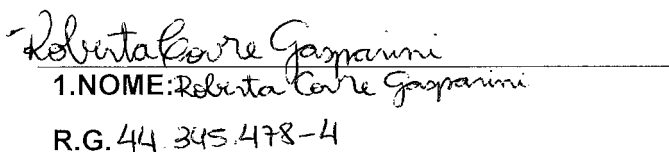 Roberta Covre Gasparini
1.NOME: Roberta Covre Gasparini
R.G. 44.345.478-4